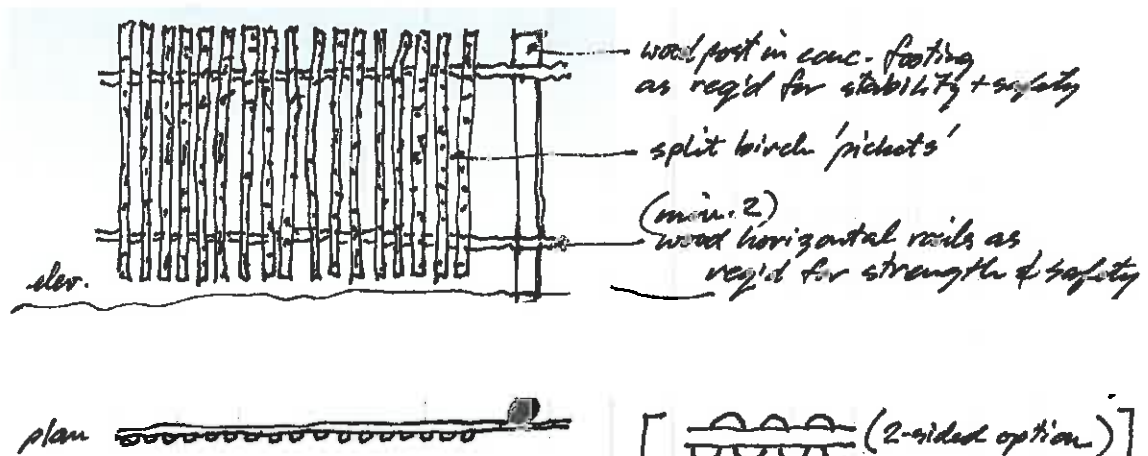 wood post in conc. footing
as req'd for stability + safety
split birch 'pickets'
(min. 2)
wood horizontal rails as
req'd for strength & safety
elev.
plan
[ (2-sided option) ]